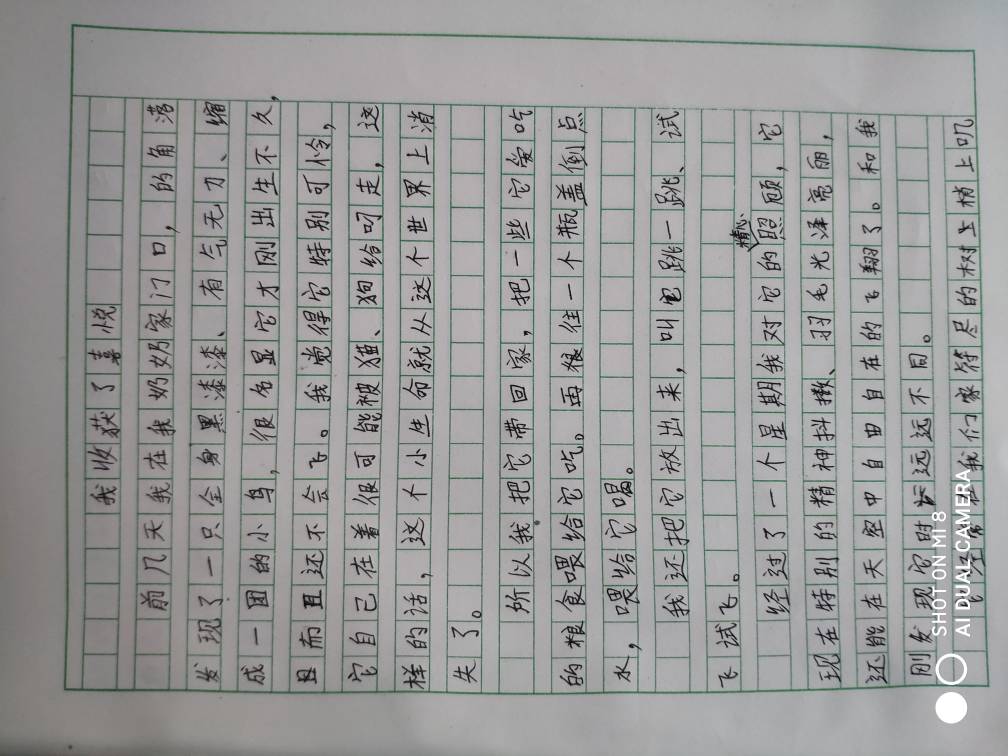 我收获了喜悦
前几天我在我奶奶家门口，的角落
发现了一只全身黑漆漆、有气无力、缩
成一团的小鸟，很名显它才刚出生不久，
且而且还不会飞。我觉得它特别可怜，
它自己在着很可能被猫、狗给叼走，这
样的话，这个小生命就从这个世界上消
失了。
所以我把它带回家，把一些它爱吃
的粮食喂给它吃。再粮住一个瓶盖倒点
水，喂给它喝。
我还把它放出来，叫它跳一跳、试
飞试飞。
经过了一个星期我对它的精心照顾，它
现在特别的精神抖擞、羽毛光泽亮丽，
还能在天空中自由自在的飞翔了。和我
刚发现它时远远不同。
它常在我们家附近的树上梢上叽
SHOT ON MI 8
AI DUAL CAMERA